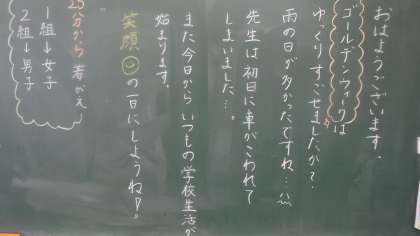 おはようございます。
ゴールデンウィークは
ゆっくりすごせましたか?
雨の日が多かったですね…
先生は初日に車がこわれて
しまいました…。
また今日からいつもの学校生活が
始まります。
笑顔の一日にしようね!
25分から着がえ
1組→女子
2組→男子